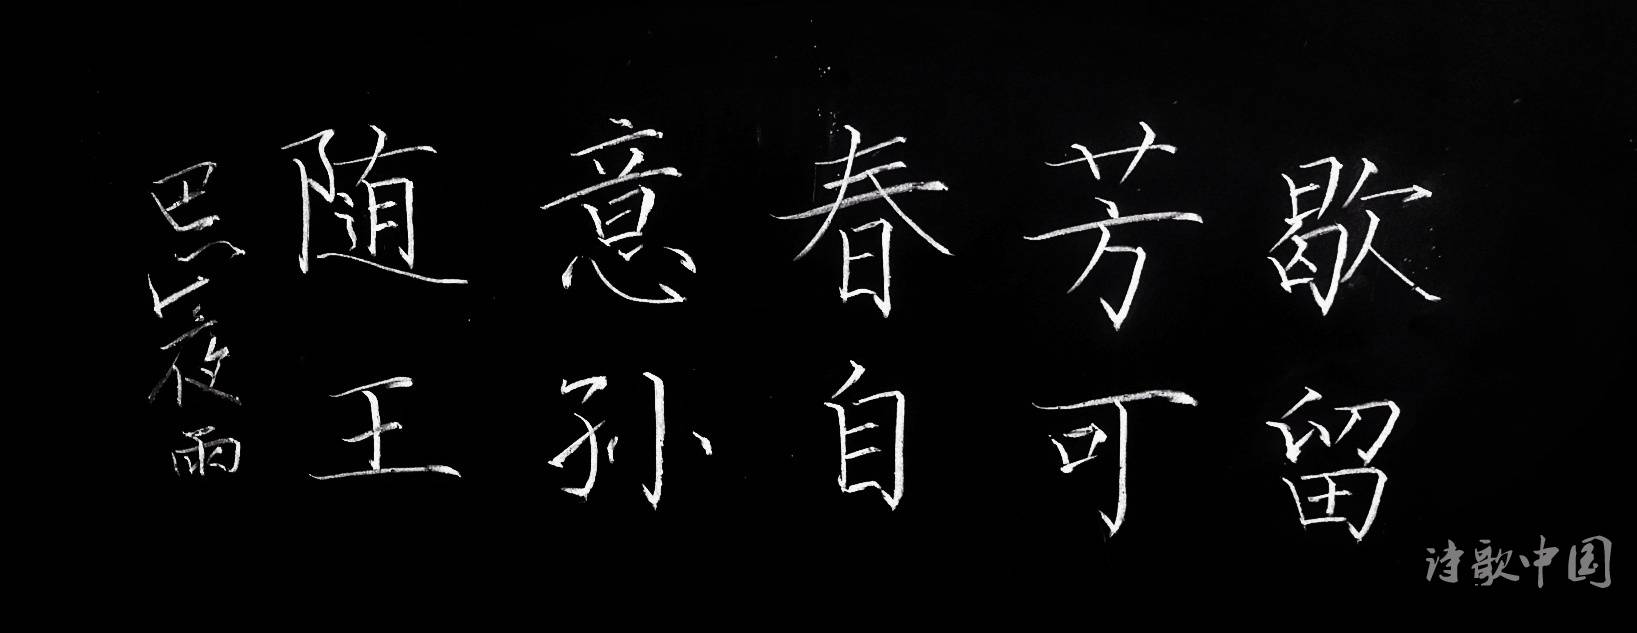 随意春芳歇
王孙自可留
巴山夜雨
诗歌中国